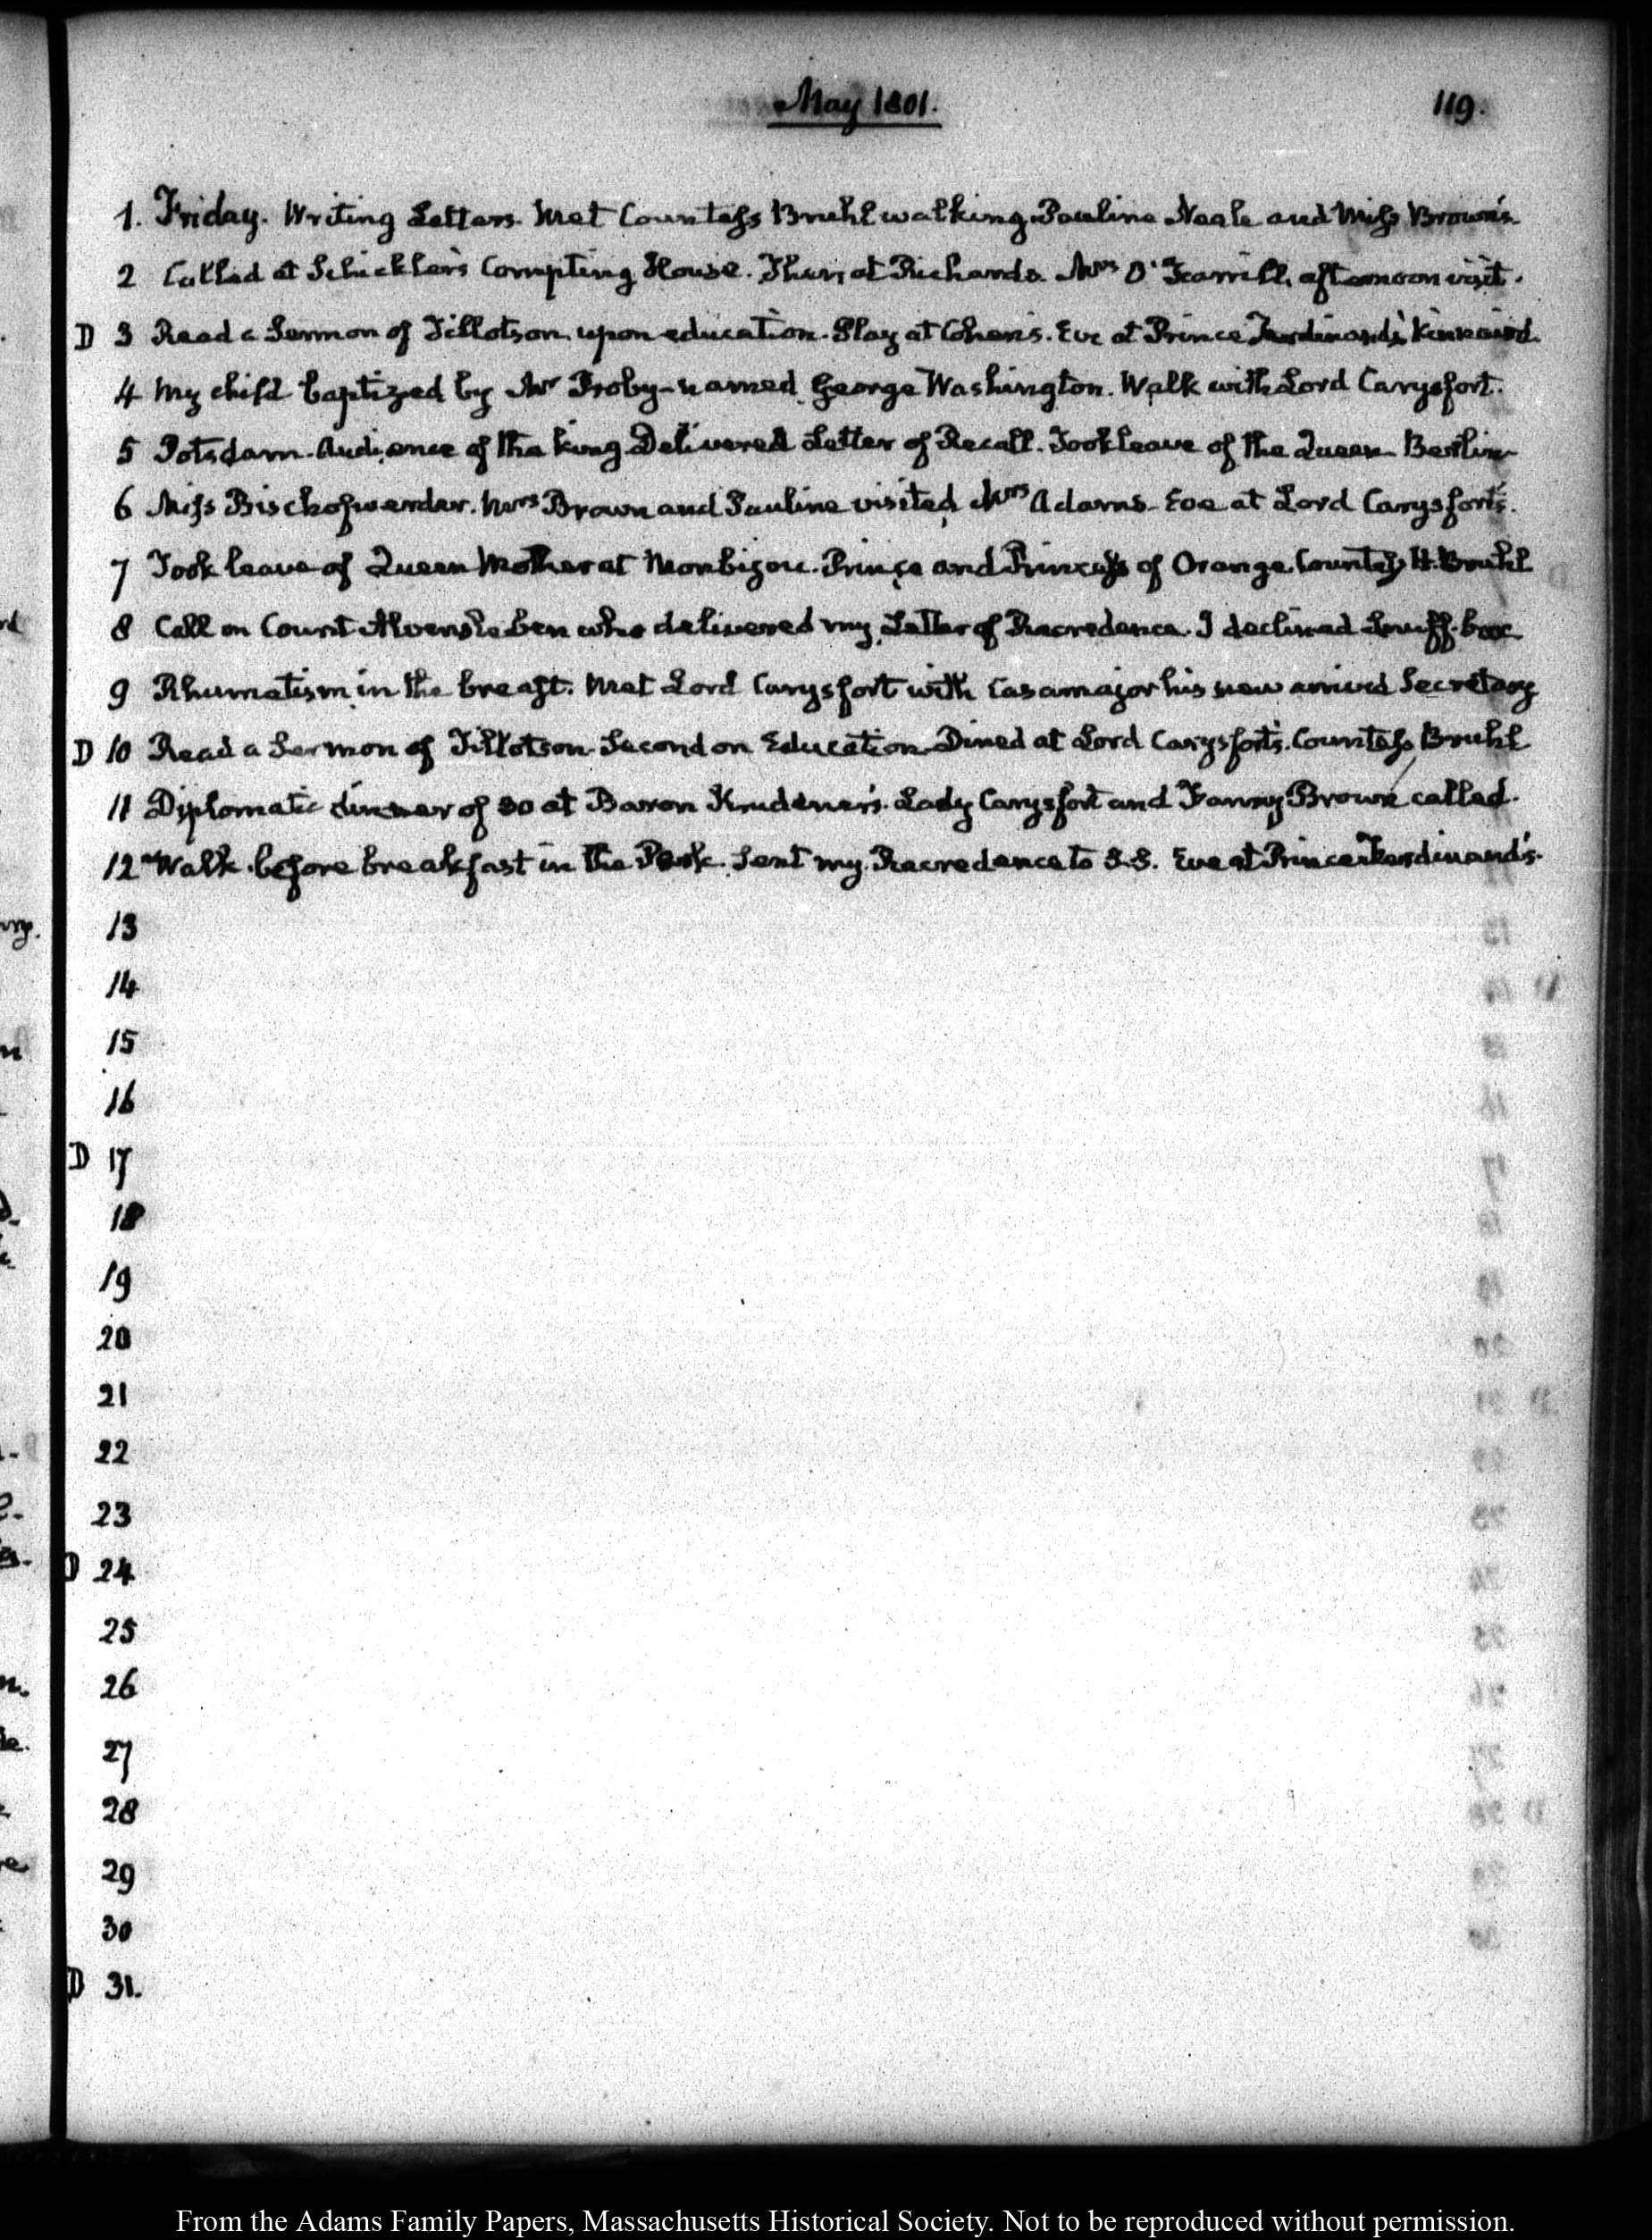 May 1801.
119.
1. Friday. Writing Letters. Met Countess Bruhl walking. Pauline Neale and Miss Brown's.
2 Called at Schickler's Compting House. Then at Richards. Mrs O'Farrill, afternoon visit.
D 3 Read a Sermon of Tillotson upon education. Play at Cohen's. Eve at Prince Ferdinand's Kinnaird.
4 My child baptized by Mr Proby—named George Washington. Walk with Lord Carysfort.
5 Potsdam. Audience of the king Delivered Letter of Recall. Took leave of the Queen. Berlin
6 Miss Bischofwerder. Mrs Brown and Pauline visited Mrs Adams. Eve at Lord Carysfort's.
7 Took leave of Queen Mother at Monbijou. Prince and Princess of Orange. Countess H. Bruhl
8 Call on Count Alvensleben who delivered my Letter of Recredence. I declined Snuff-box
9 Rhumatism in the breast. Met Lord Carysfort with Casamajor his new arrived Secretary
D 10 Read a Sermon of Tillotson Second on Education. Dined at Lord Carysfort's. Countess Bruhl
11 Diplomatic dinner of 30 at Baron Krudener's. Lady Carysfort and Fanny Brown called.
12 Walk before breakfast in the Park. Sent my Recredence to S.S. Eve at Prince Ferdinand's.
13
14
15
16
D 17
18
19
20
21
22
23
D 24
25
26
27
28
29
30
D 31.
From the Adams Family Papers, Massachusetts Historical Society. Not to be reproduced without permission.